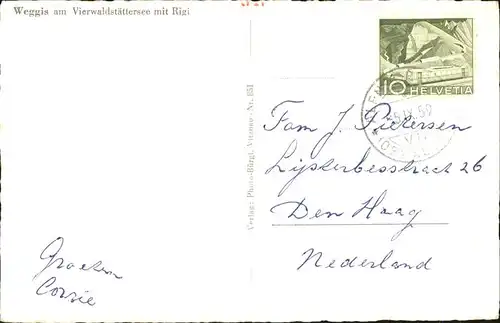 Weggis am Vierwaldstättersee mit Rigi
10 HELVETIA
Fam J. Pietersen
Lijsterbesstraat 26
Den Haag
Nederland
Verlag: Photo-Bürgi, Vitznau - Nr. 851
Groeten
Corrie